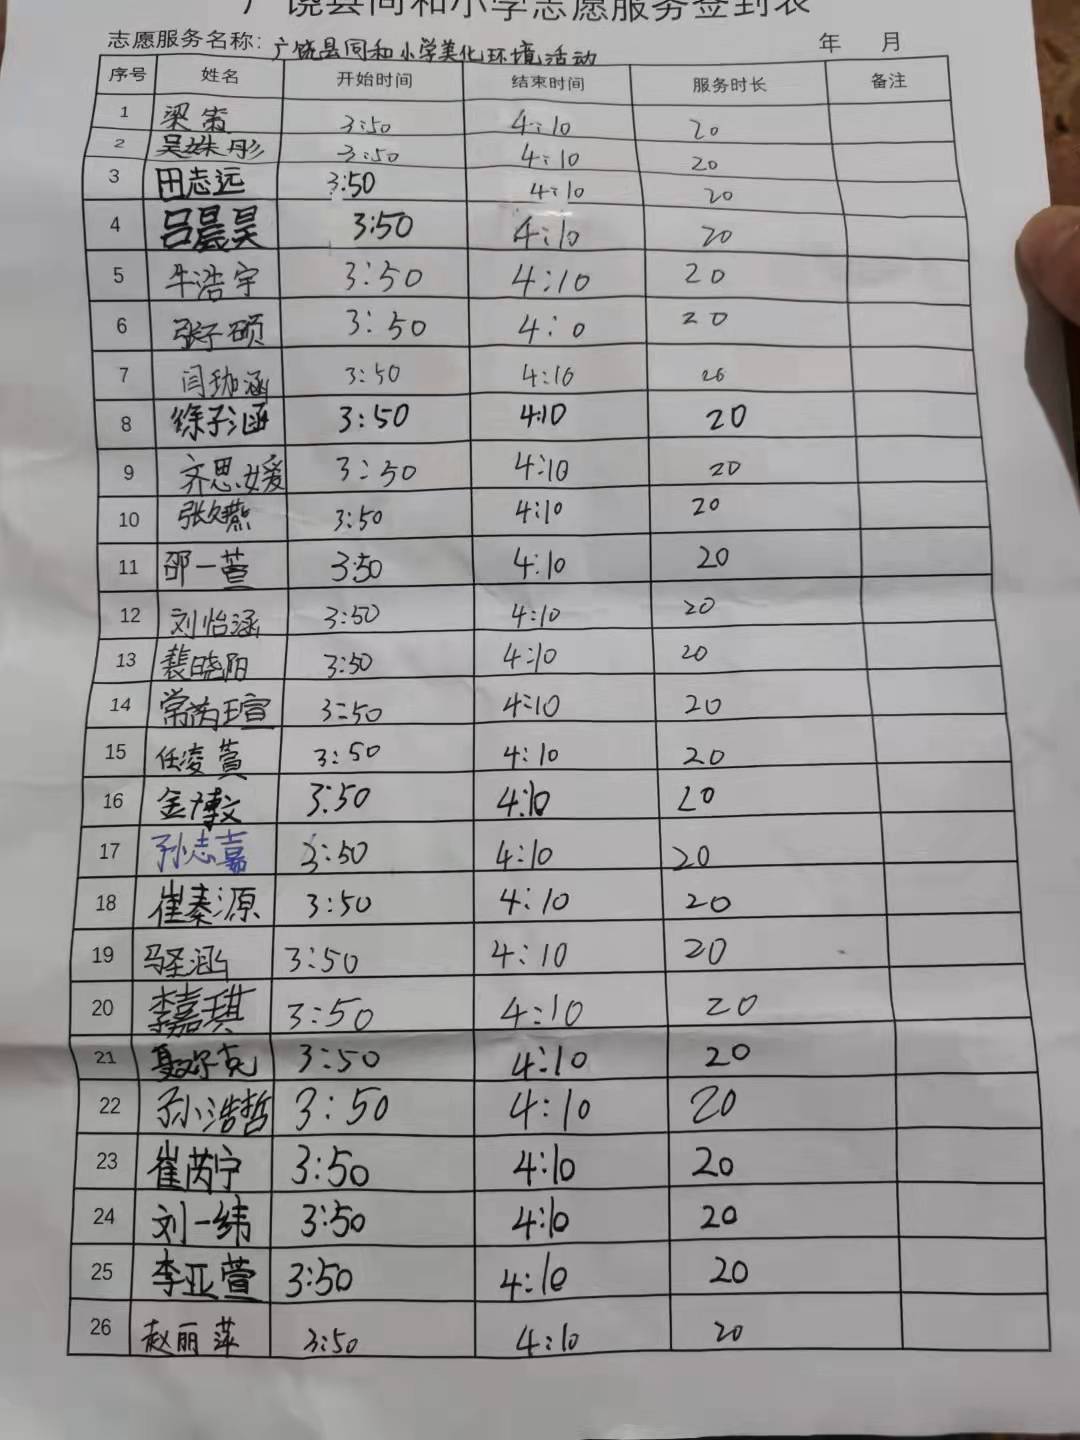 广饶县同和小学志愿服务签到表
志愿服务名称：广饶县同和小学美化环境活动 年 月
序号 姓名 开始时间 结束时间 服务时长 备注
1 梁 3:50 4:10 20
2 吴姝彤 3:50 4:10 20
3 田志远 3:50 4:10 20
4 吕晨昊 3:50 4:10 20
5 牛浩宇 3:50 4:10 20
6 张子硕 3:50 4: 0 20
7 闫珈涵 3:50 4:10 20
8 徐子涵 3:50 4:10 20
9 齐思媛 3:50 4:10 20
10 3:50 4:10 20
11 邵一萱 3:50 4:10 20
12 刘怡涵 3:50 4:10 20
13 裴晓阳 3:50 4:10 20
14 常芮瑄 3:50 4:10 20
15 任凌萱 3:50 4:10 20
16 金博文 3:50 4:10 20
17 孙志嘉 3:50 4:10 20
18 崔秦源 3:50 4:10 20
19 3:50 4:10 20
20 李嘉琪 3:50 4:10 20
21 3:50 4:10 20
22 孙浩哲 3:50 4:10 20
23 崔芮宁 3:50 4:10 20
24 刘一纬 3:50 4:10 20
25 李亚萱 3:50 4:10 20
26 赵丽萍 3:50 4:10 20